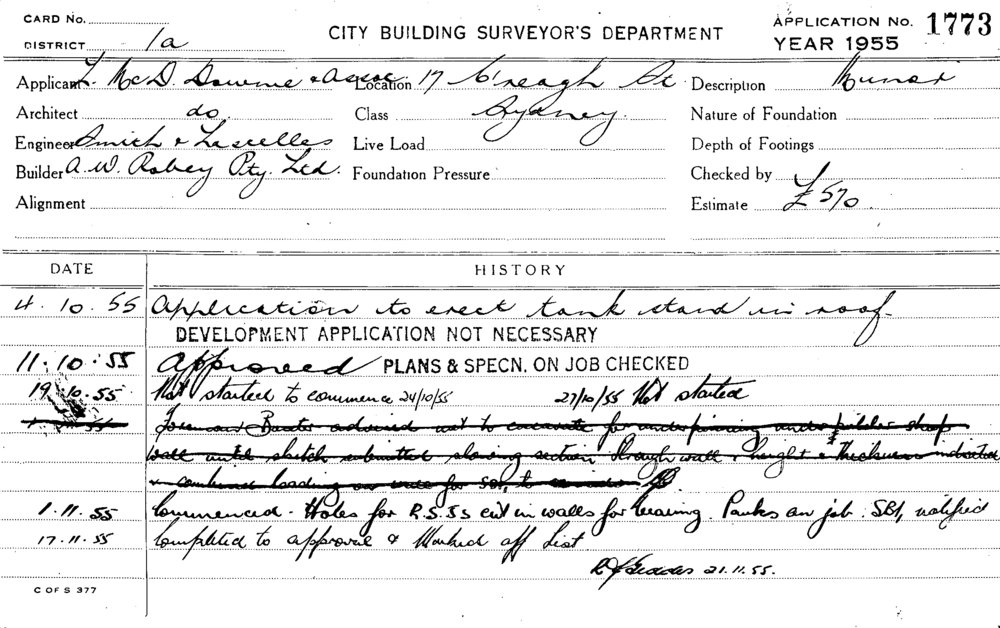 CARD No.
DISTRICT 1a
CITY BUILDING SURVEYOR'S DEPARTMENT
APPLICATION No. 1773
YEAR 1955
Applicant L. McD. Downie & Assoc Location 17 O'Reagh St Description Minor
Architect do. Class Sydney. Nature of Foundation
Engineer Smith & Lascelles Live Load Depth of Footings
Builder A. W. Robey Pty. Ltd. Foundation Pressure Checked by
Alignment Estimate £570
DATE HISTORY
4.10.55 Application to erect tank stand in roof.
DEVELOPMENT APPLICATION NOT NECESSARY
11.10.55 Approved PLANS & SPECN. ON JOB CHECKED
19.10.55 Not started to commence 24/10/55 27/10/55 Not started
Foreman Baxter advised not to excavate for underpinning under
wall until sketch submitted showing section through wall & height & thickness indicated
& combined loading on
1.11.55 Commenced. Holes for R.S.Js cut in walls for bearing. on job. notified
17.11.55 Completed to approval & Marked off List
21.11.55.
C OF S 377